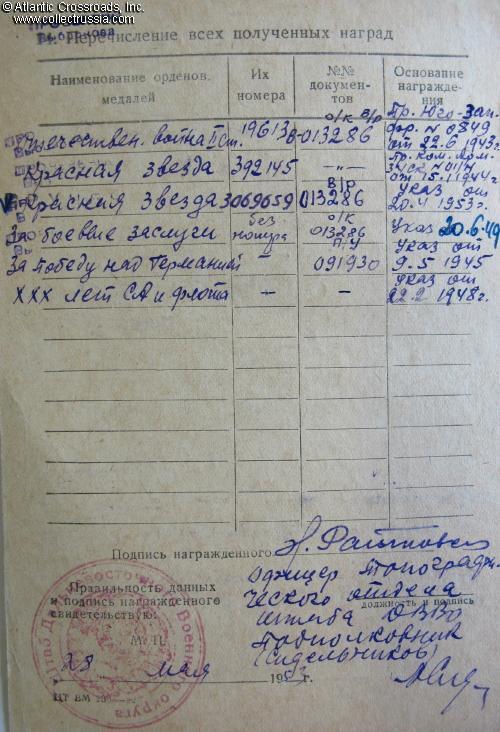 © Atlantic Crossroads, Inc.
www.collectrussia.com
11. Перечисление всех полученных наград
Наименование орденов, медалей
Их номера
№№ документов
Основание награждения
Отечествен. война II ст. 196136 о/к в/р 0-013286 Пр. Юго-Зап. фр. № 0849 от 22.6 1943г.
Красная звезда 392145 -"- Пр. ком. Арм. от 15.1.1944г
V Красная Звезда 3069659 013286 Указ от 20.4 1953г.
За боевые заслуги без номера о/к 013286 Указ 20.6.49
За победу над Германией — 091930 Указ от 9.5 1945
XXX лет СА и флота — — Указ от 22.2 1948г.
Подпись награжденного
Правильность данных
и подпись награжденного
свидетельствую:
офицер топографи-
ческого отдела
должность и подпись
штаба ДВВО
подполковник
(Сидельников)
М. П.
28 мая 195 г.